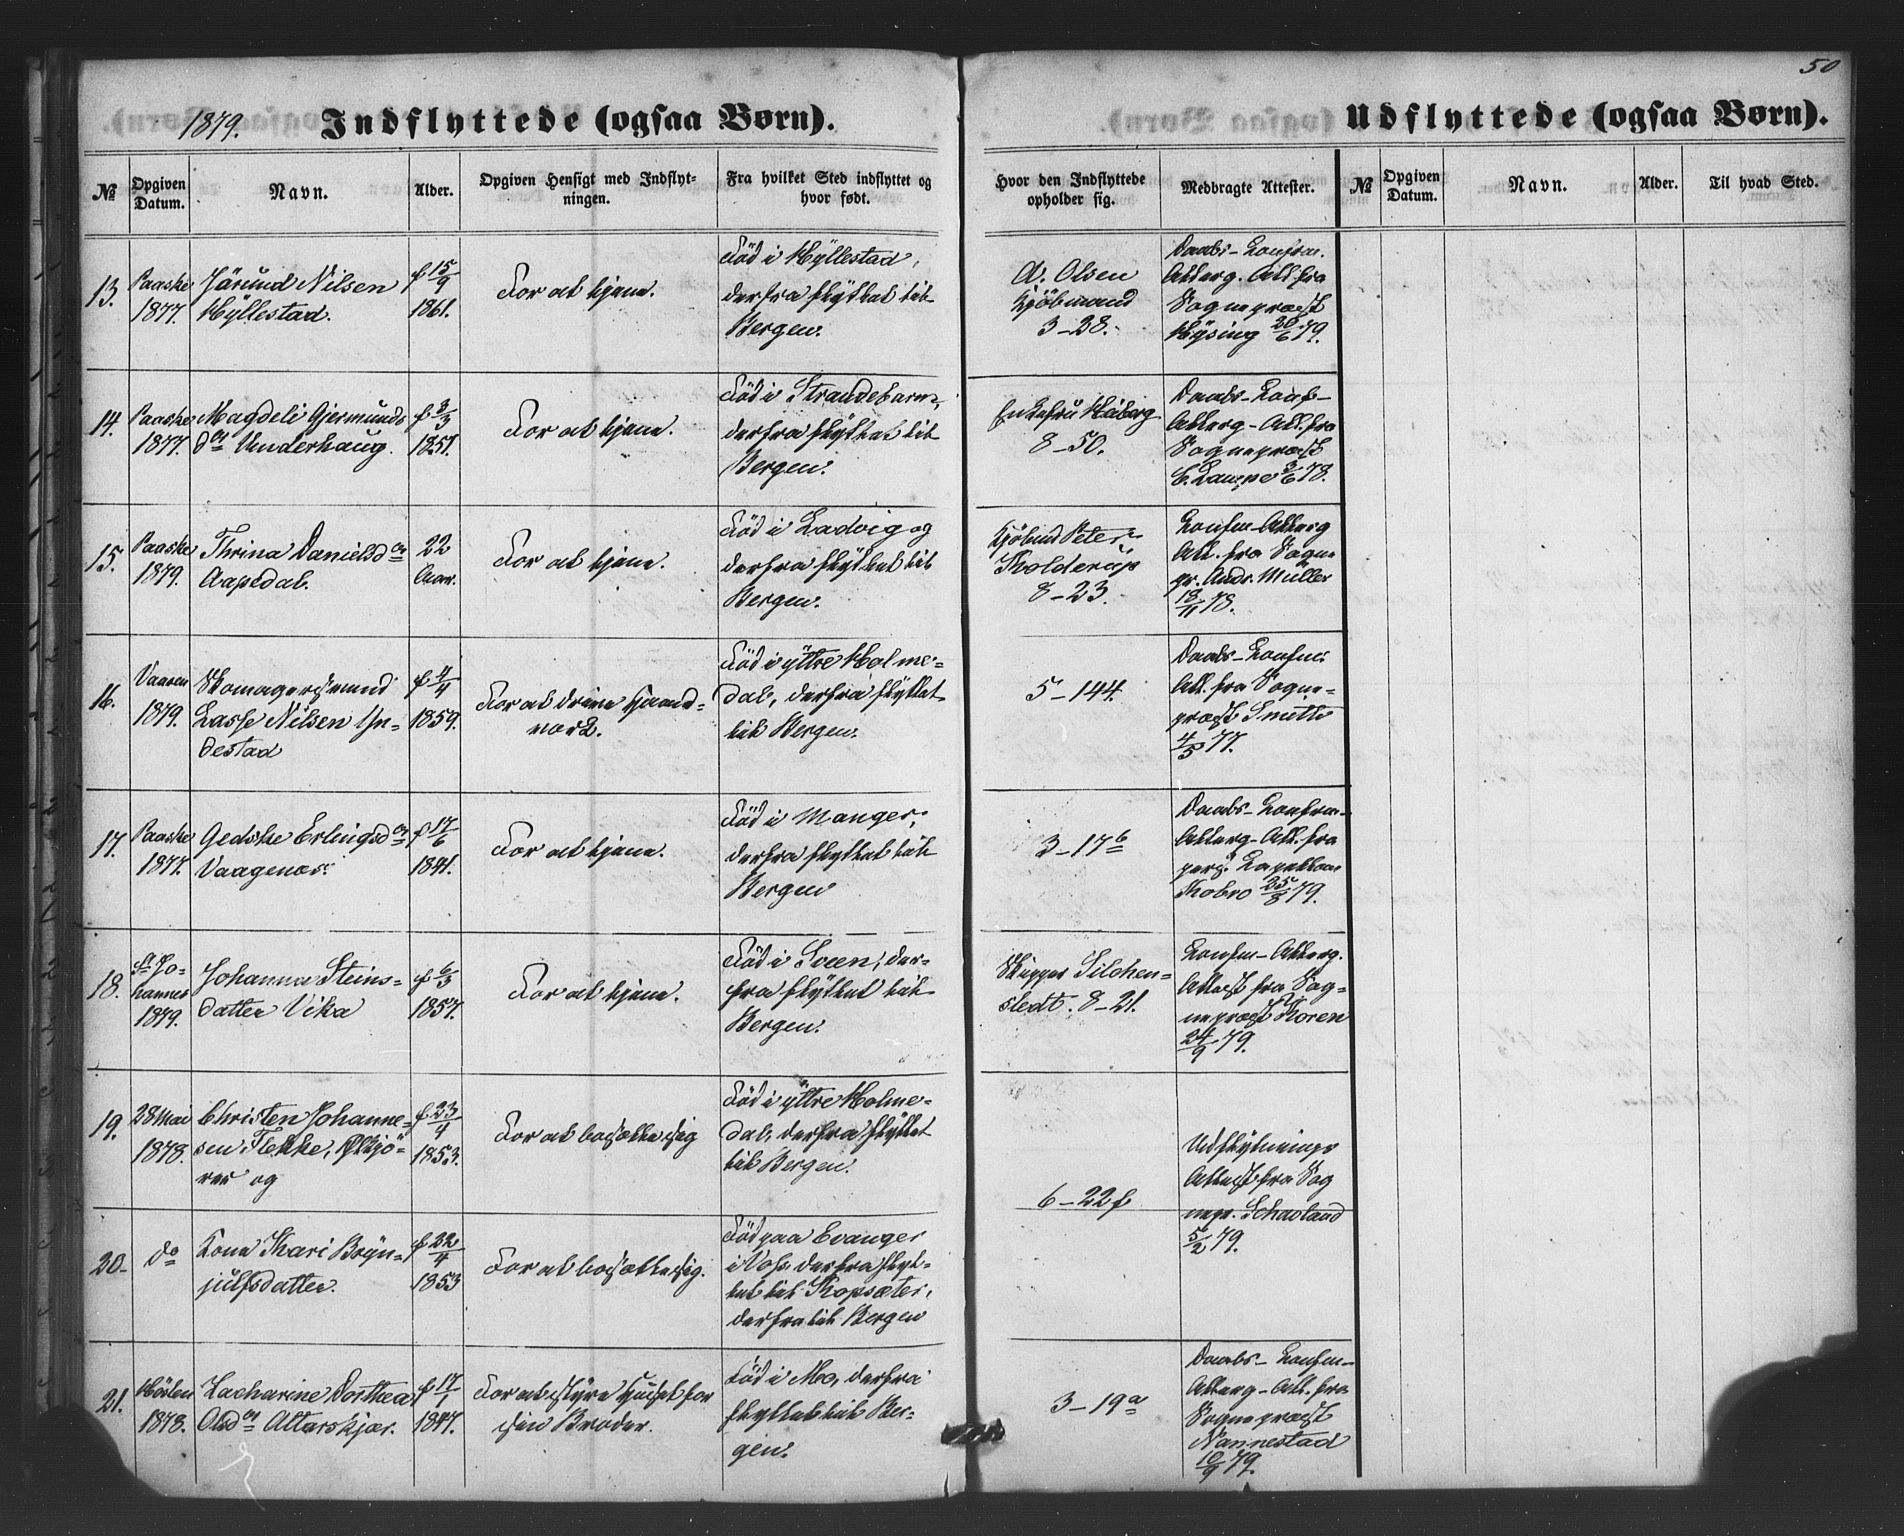 50
1879.
Indflyttede (ogsaa Børn).
Udflyttede (ogsaa Børn).
№
Opgiven Datum.
Navn.
Alder.
Opgiven Hensigt med Indflyt-
ningen.
Fra hvilket Sted indflyttet og
hvor født.
Hvor den Indflyttede
opholder sig.
Medbragte Attester.
№
Opgiven Datum.
Navn.
Alder.
Til hvad Sted.
13.
Paaske
1877.
Jörund Nilsen
Hÿllestad.
f 15/9
1861.
For at tjene.
Död i Hÿllestad,
derfra flyttet til
Bergen.
A. Olsen
Kjöbmand
3-28.
Daabs- Konfm.
Attesg. Att. fra
Sognepræst
Hÿsing 20/6 79.
14.
Paaske
1877.
Magdeli Gjermunds
der Underhaug.
f 3/3
1857.
For at tjene.
Född i Strandebarm,
derfra flyttet til
Bergen.
Enkefru Heiberg
8-50.
Daabs- Konf-
Attesg- Att. fra
Sognepræst
C. Lampe 3/6 78.
15.
Paaske
1879.
Thrina Danielsdr
Aapedal.
22
Aar.
For at tjene.
Född i Ladvig og
derfra flyttet til
Bergen.
Kjöbmd Peter
Kolderup
8-23.
Konfm- Attesg
Att. fra Sogn
pr. Andr. Müller
18/11 78.
16.
Vaaren
1879.
Skomagersvend
Lasse Nilsen Yn-
destad
f 7/4
1859.
For at drive Haand-
værk.
Född i ÿttre Holme-
dal, derfra flyttet
til Bergen.
5-144.
Daabs- Konfm.
Att. fra Sogne-
præst Smitt
4/5 77.
17.
Paaske
1877.
Gedske Erlingsdr
Vaagenæs.
f 17/6
1841.
For at tjene.
Född i Manger,
derfra flyttet til
Bergen
3-17b
Daabs- Konfm-
Attesg- Att. fra
pers. Kapellan
Kobro 25/8 79.
18.
St Jo-
hannes
1879.
Johanna Steins-
datter Vika
f 6/3
1857.
For at tjene.
Född i Sveen, der-
fra flyttet til
Bergen.
Skipper Silchen-
stedt. 8-21.
Konfm- Attesg.
Attest fra Sog-
nepræst Koren
24/9 79.
19.
28 Mai
1878.
Christen Johanne-
sen Flekke, Eskjö-
rer og
f 23/4
1853.
For at bosætte sig
Född i ÿttre Holme-
dal, derfra flyttet
til Bergen.
6-22f
Udflytnings
Attest fra Sog
nepr. Schavland
5/2 79.
20.
do
Kone Kari Bryn-
julfsdatter.
f 22/4
1853
For at bosætte sig.
Född paa Evanger
i Voss, derfra flyt-
tet til Kopsæter,
derfra til Bergen
21.
Hösten
1878.
Zacharine Dorthea
Olsdr Altarskjær.
f 17/1
1847.
For at styre Huset for
sin Broder.
Född i Mo, derfra
flyttet til Ber-
gen.
3-19a
Daabs- Konfm-
Attesg- Att. fra
Sognepræst
Nannestad
10/9 79.